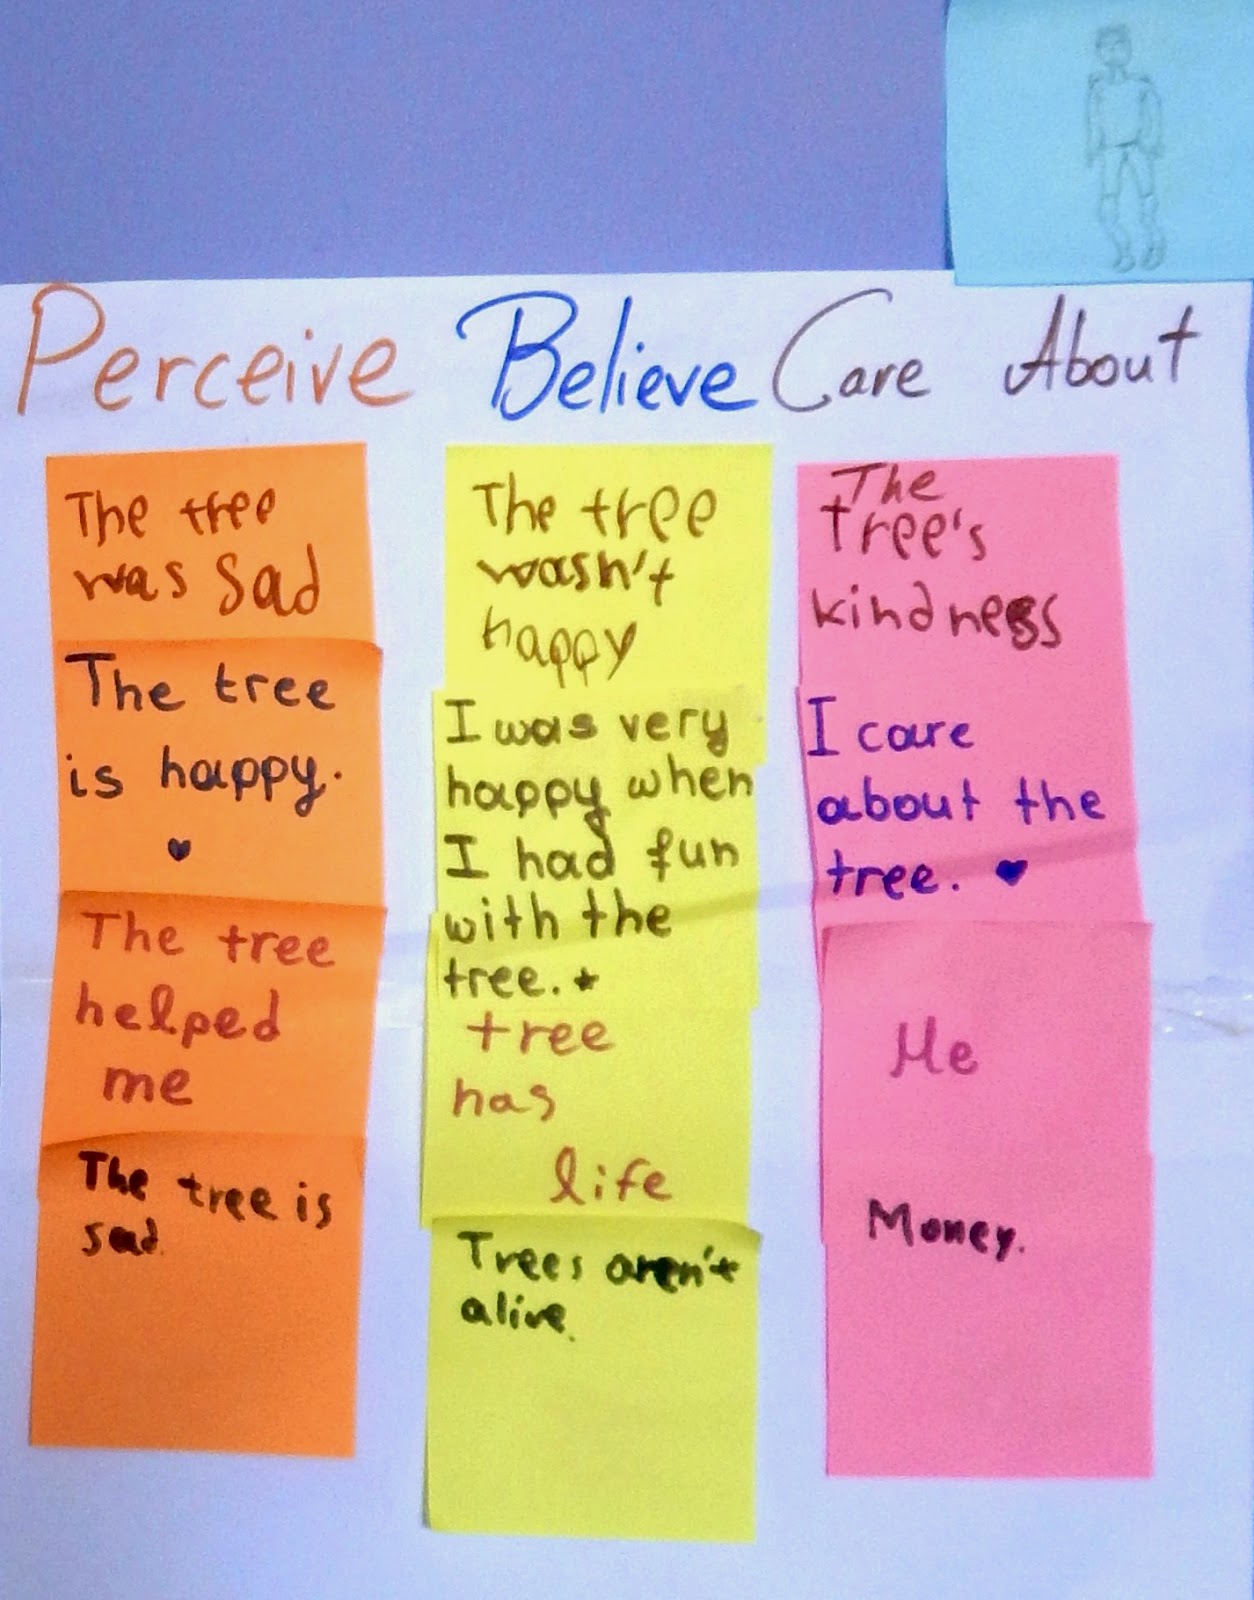 Perceive Believe Care About
The tree
was sad
The tree
is happy.
The tree
helped
me
The tree is
sad.
The tree
wasn't
happy
I was very
happy when
I had fun
with the
tree.
tree
has
life
Trees aren't
alive.
The
Tree's
kindness
I care
about the
tree.
Me
Money.